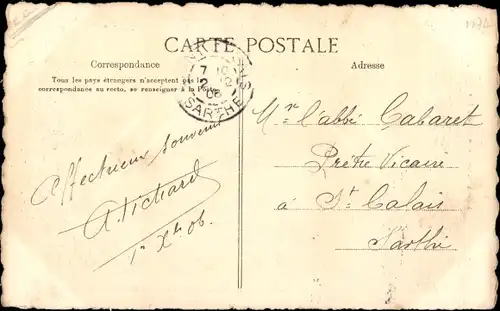 CARTE POSTALE
Correspondance
Adresse
Tous les pays étrangers n'acceptent pas la
correspondance au recto, se renseigner à la Poste
SARTHE
Affectueux souvenir
1er Xbre 06.
Mr l'abbé Cabaret
Prêtre Vicaire
à St Calais
Sarthe